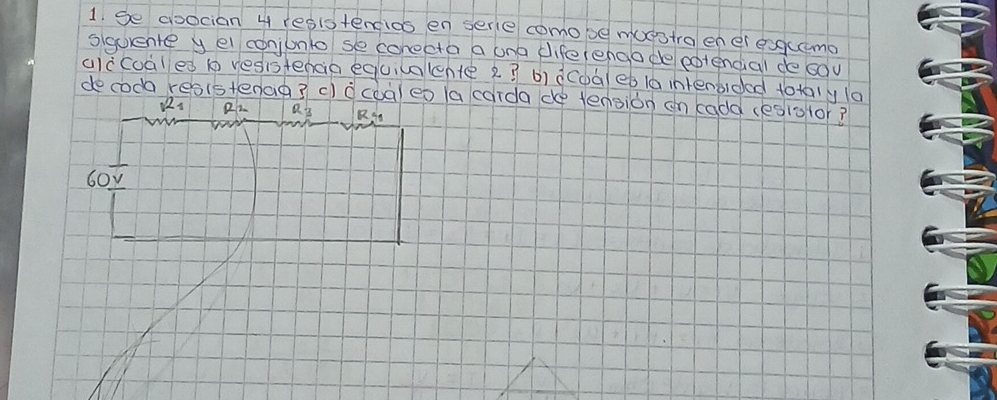 1. Se asocian 4 resistencias en serie como se muestra en el esquema
siguiente y el conjunto se conecta a una diferencia de potencial de 60V
a) ¿Cuál es la resistencia equivalente? b) ¿Cuál es la intensidad total y la
de cada resistencia? c) ¿Cuál es la caída de tensión en cada resistor?
R1 R2 R3 R4
60V